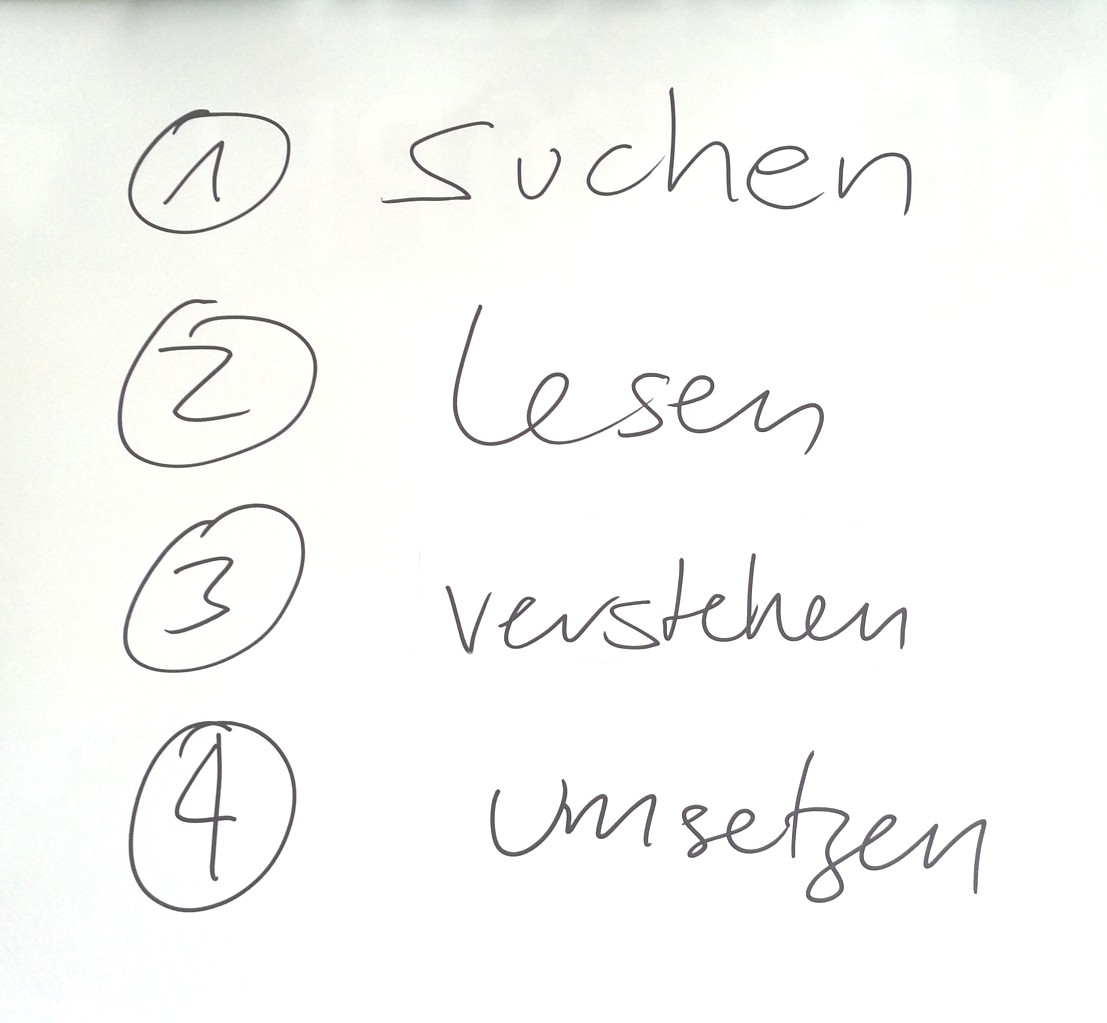 1 suchen
2 lesen
3 verstehen
4 umsetzen